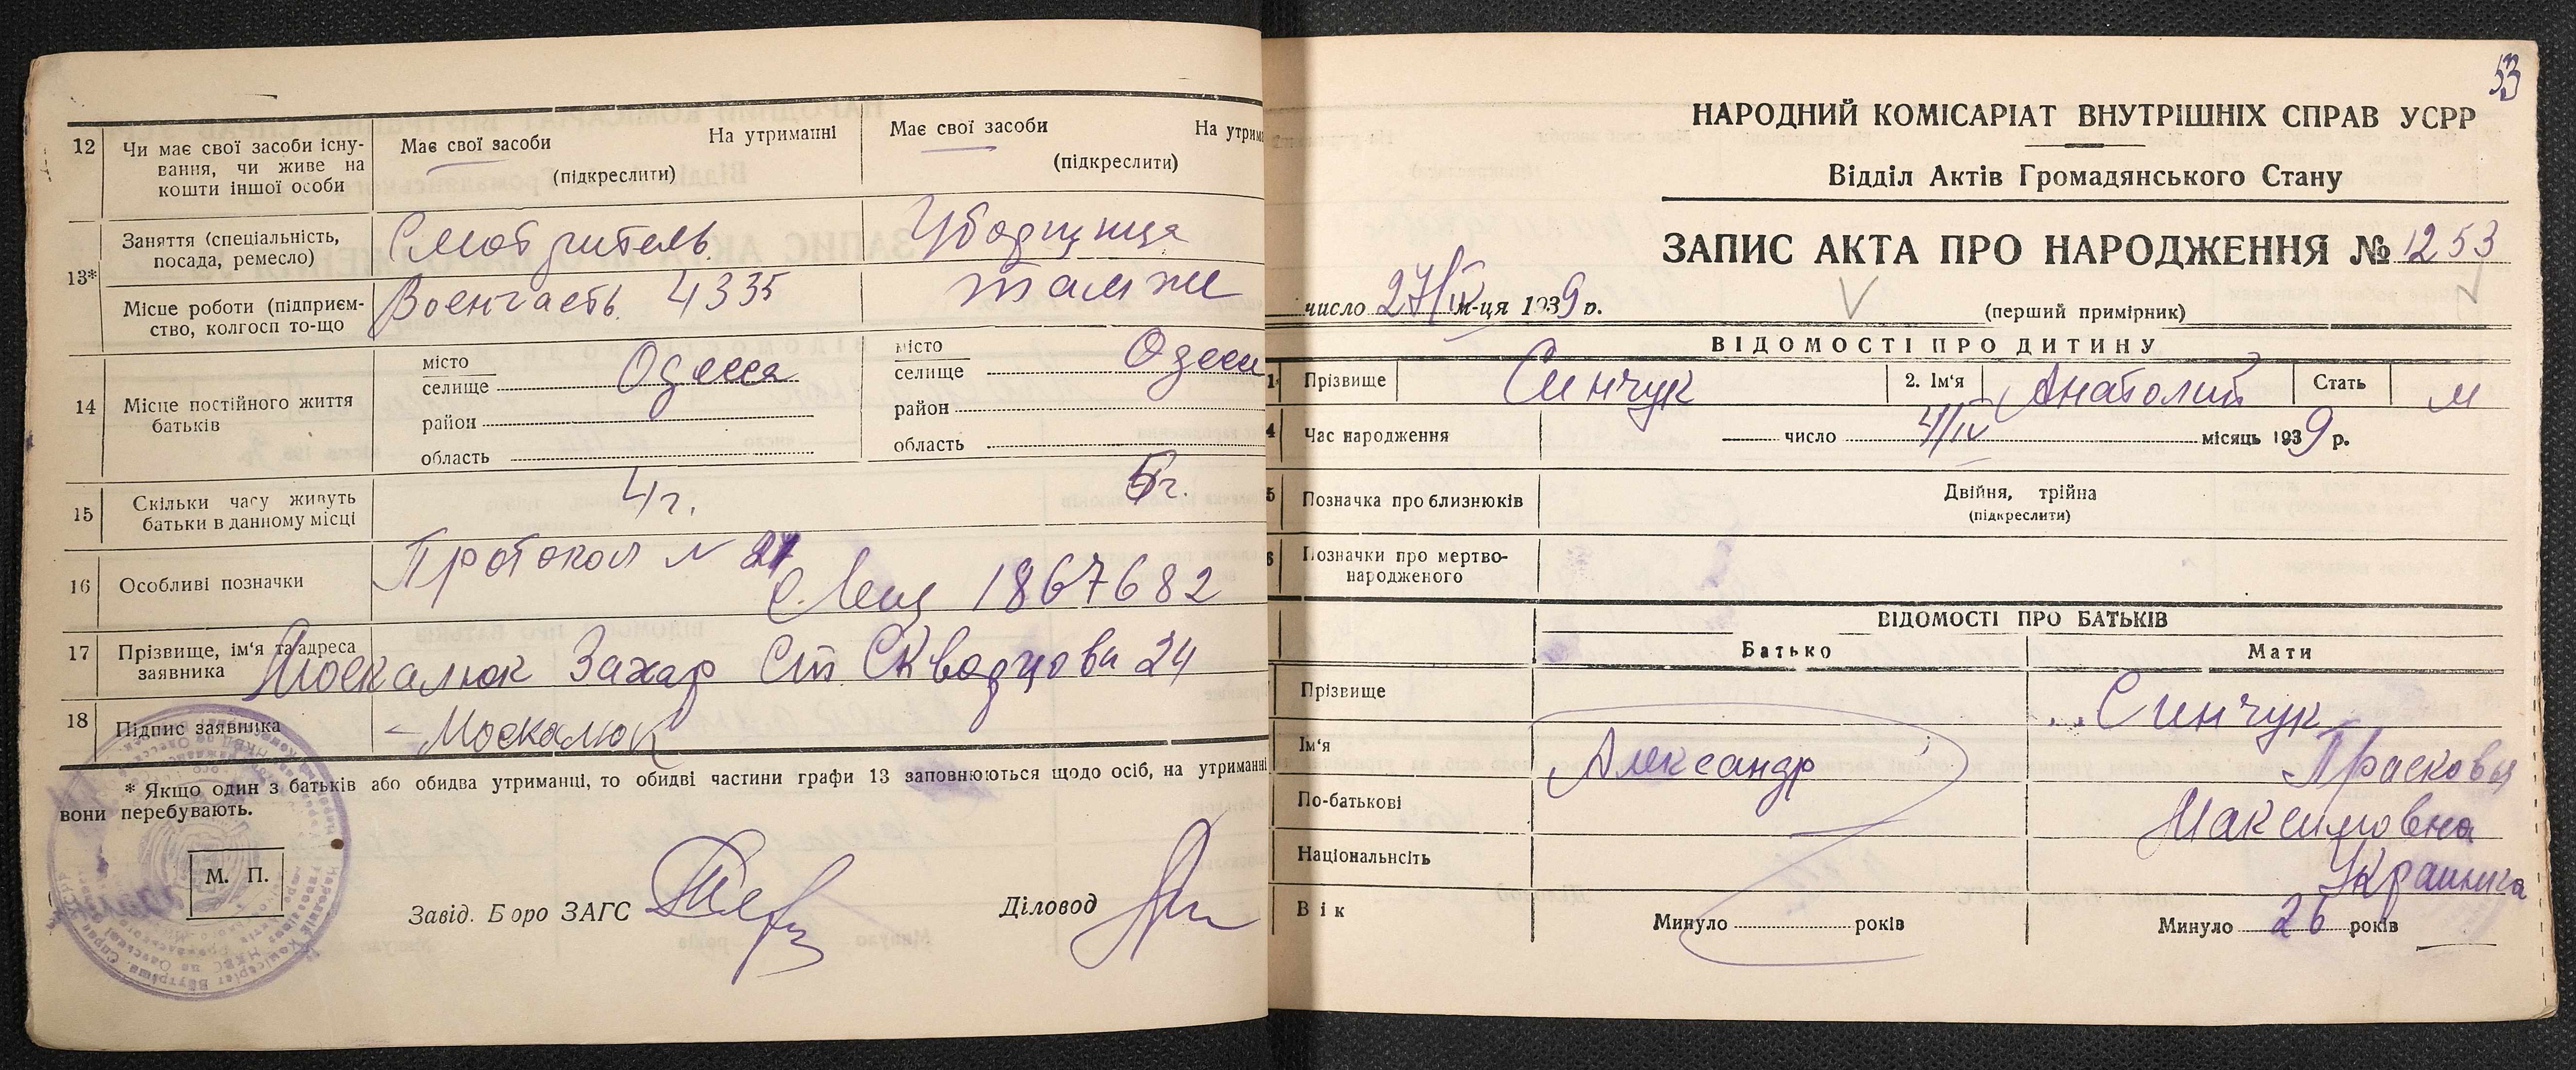 12
Чи має свої засоби існу-
вання, чи живе на
кошти іншої особи
Має свої засоби На утриманні
(підкреслити)
Має свої засоби На утрим
(підкреслити)
13*
Заняття (спеціальність,
посада, ремесло)
Смотритель
Уборщица
Місце роботи (підприєм-
ство, колгосп то-що
Военчасть 4335
там же
14
Місце постійного життя
батьків
місто
селище Одесса
район
область
місто
селище Одесс
район
область
15
Скільки часу живуть
батьки в данному місці
4 г.
5 г.
16
Особливі позначки
Протокол N 21
1867682
17
Прізвище, ім'я та адреса
заявника
Москалюк Захар Ст Скворцова 24
18
Підпис заявника
Москалюк
* Якщо один з батьків або обидва утриманці, то обидві частини графи 13 заповнюються щодо осіб, на утриманні
вони перебувають.
М. П.
Завід. Бюро ЗАГС
Діловод
53
НАРОДНИЙ КОМІСАРІАТ ВНУТРІШНІХ СПРАВ УСРР
Відділ Актів Громадянського Стану
ЗАПИС АКТА ПРО НАРОДЖЕННЯ № 1253
число 27/IV м-ця 1939 р.
(перший примірник)
ВІДОМОСТІ ПРО ДИТИНУ
1 Прізвище Синчук 2. Ім'я Анатолий Стать м
4 Час народження число 4/IV місяць 1939 р.
5 Позначка про близнюків Двійня, трійна
(підкреслити)
6 Позначки про мертво-
народженого
ВІДОМОСТІ ПРО БАТЬКІВ
Батько Мати
Прізвище Синчук
Ім'я Александр Прасковья
По-батькові Максимовна
Національність Украинка
Вік Минуло років Минуло 26 років